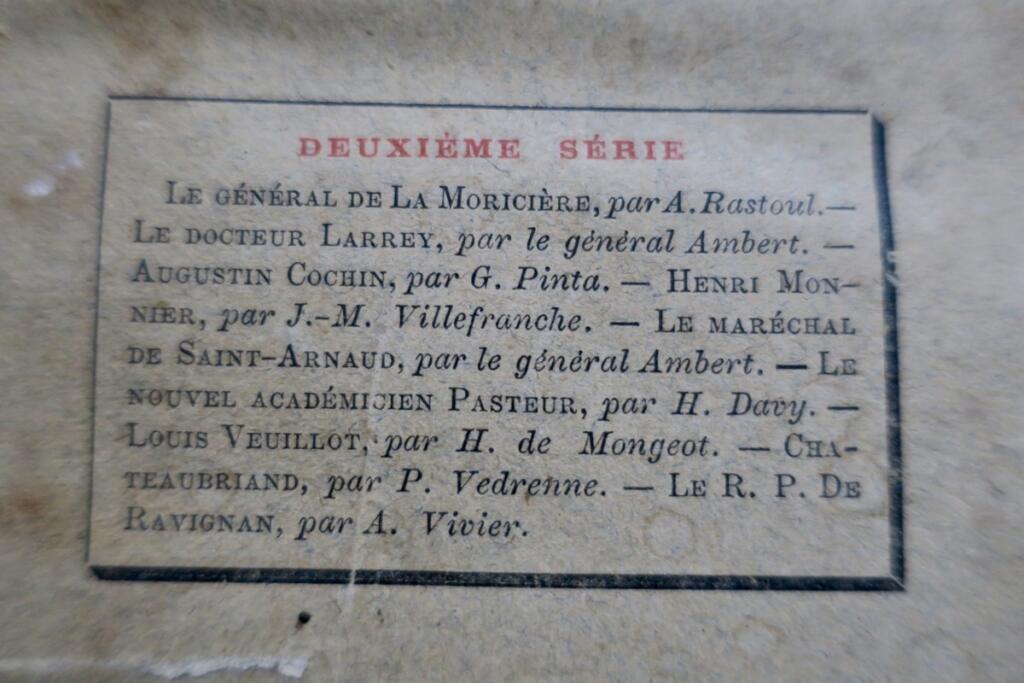 DEUXIÈME SÉRIE
LE GÉNÉRAL DE LA MORICIÈRE, par A. Rastoul.—
LE DOCTEUR LARREY, par le général Ambert. —
AUGUSTIN COCHIN, par G. Pinta. — HENRI MON-
NIER, par J.-M. Villefranche. — LE MARÉCHAL
DE SAINT-ARNAUD, par le général Ambert. — LE
NOUVEL ACADÉMICIEN PASTEUR, par H. Davy. —
LOUIS VEUILLOT, par H. de Mongeot. — CHA-
TEAUBRIAND, par P. Vedrenne. — LE R. P. DE
RAVIGNAN, par A. Vivier.